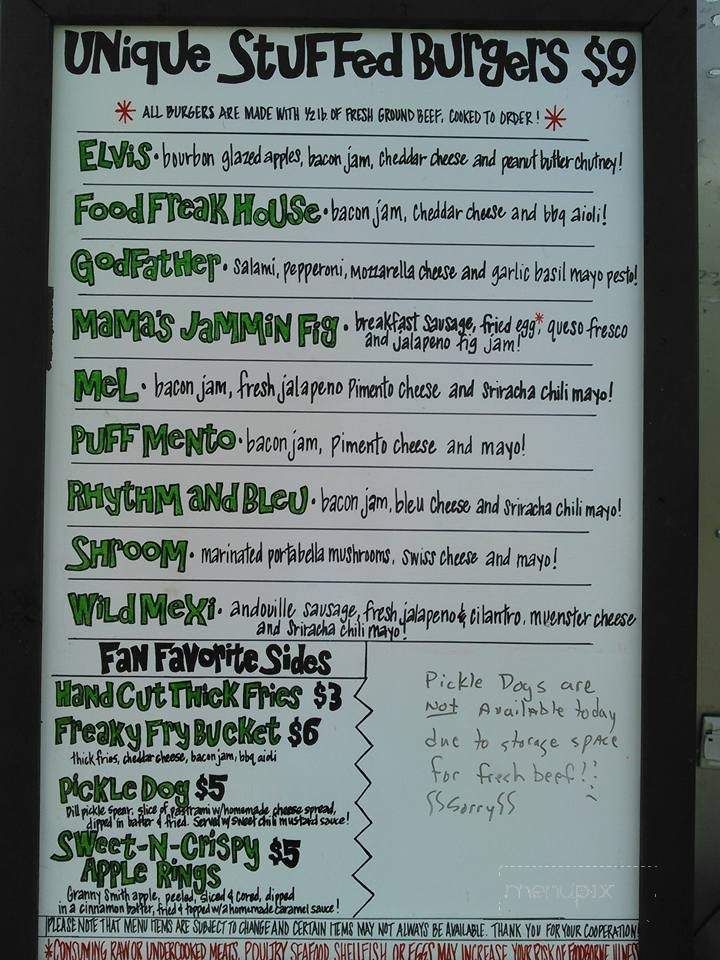 UNIQUE STUFFED BURGERS $9
* ALL BURGERS ARE MADE WITH 1/2 lb. OF FRESH GROUND BEEF, COOKED TO ORDER! *
ELVIS • bourbon glazed apples, bacon jam, cheddar cheese and peanut butter chutney!
FOOD FREAK HOUSE • bacon jam, cheddar cheese and bbq aioli!
GODFATHER • salami, pepperoni, mozzarella cheese and garlic basil mayo pesto!
MAMA'S JAMMIN FIG • breakfast sausage, fried egg*, queso fresco
and jalapeno fig jam!
MEL • bacon jam, fresh jalapeno pimento cheese and sriracha chili mayo!
PUFF MENTO • bacon jam, pimento cheese and mayo!
RHYTHM AND BLEU • bacon jam, bleu cheese and sriracha chili mayo!
SHROOM • marinated portabella mushrooms, swiss cheese and mayo!
WILD MEXI • andouille sausage, fresh jalapeno & cilantro, muenster cheese
and sriracha chili mayo!
FAN FAVORITE SIDES
HAND CUT THICK FRIES $3
FREAKY FRY BUCKET $6
thick fries, cheddar cheese, bacon jam, bbq aioli
PICKLE DOG $5
Dill pickle spear, slice of pastrami w/homemade cheese spread,
dipped in batter & fried. Served w/ sweet chili mustard sauce!
SWEET-N-CRISPY $5
APPLE RINGS
Granny Smith apple, peeled, sliced & cored, dipped
in a cinnamon batter, fried & topped w/a homemade caramel sauce!
Pickle Dogs are
NOT Available today
due to storage space
for fresh beef!!
SSSorrySS
menupix
PLEASE NOTE THAT MENU ITEMS ARE SUBJECT TO CHANGE AND CERTAIN ITEMS MAY NOT ALWAYS BE AVAILABLE. THANK YOU FOR YOUR COOPERATION
*CONSUMING RAW OR UNDERCOOKED MEATS, POULTRY, SEAFOOD, SHELLFISH, OR EGGS MAY INCREASE YOUR RISK OF FOODBORNE ILLNESS